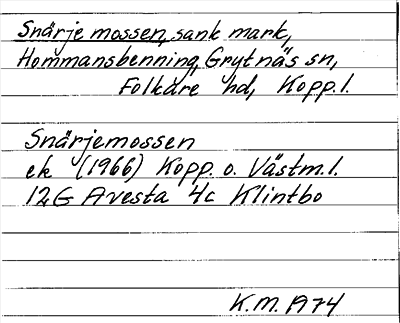 Snärje mossen, sank mark,
Hommansbenning, Grytnäs sn,
Folkare hd, Kopp. l.
Snärjemossen
ek (1966) Kopp. o. Västm. l.
12G Avesta 4c Klintbo
K.M. A74